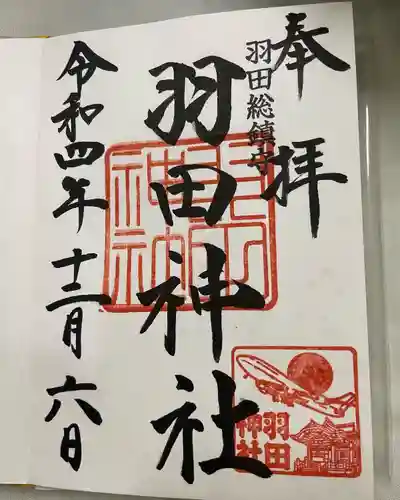 奉拝
羽田総鎮守
羽田神社
令和四年十二月六日
羽田
神社
羽田
神社